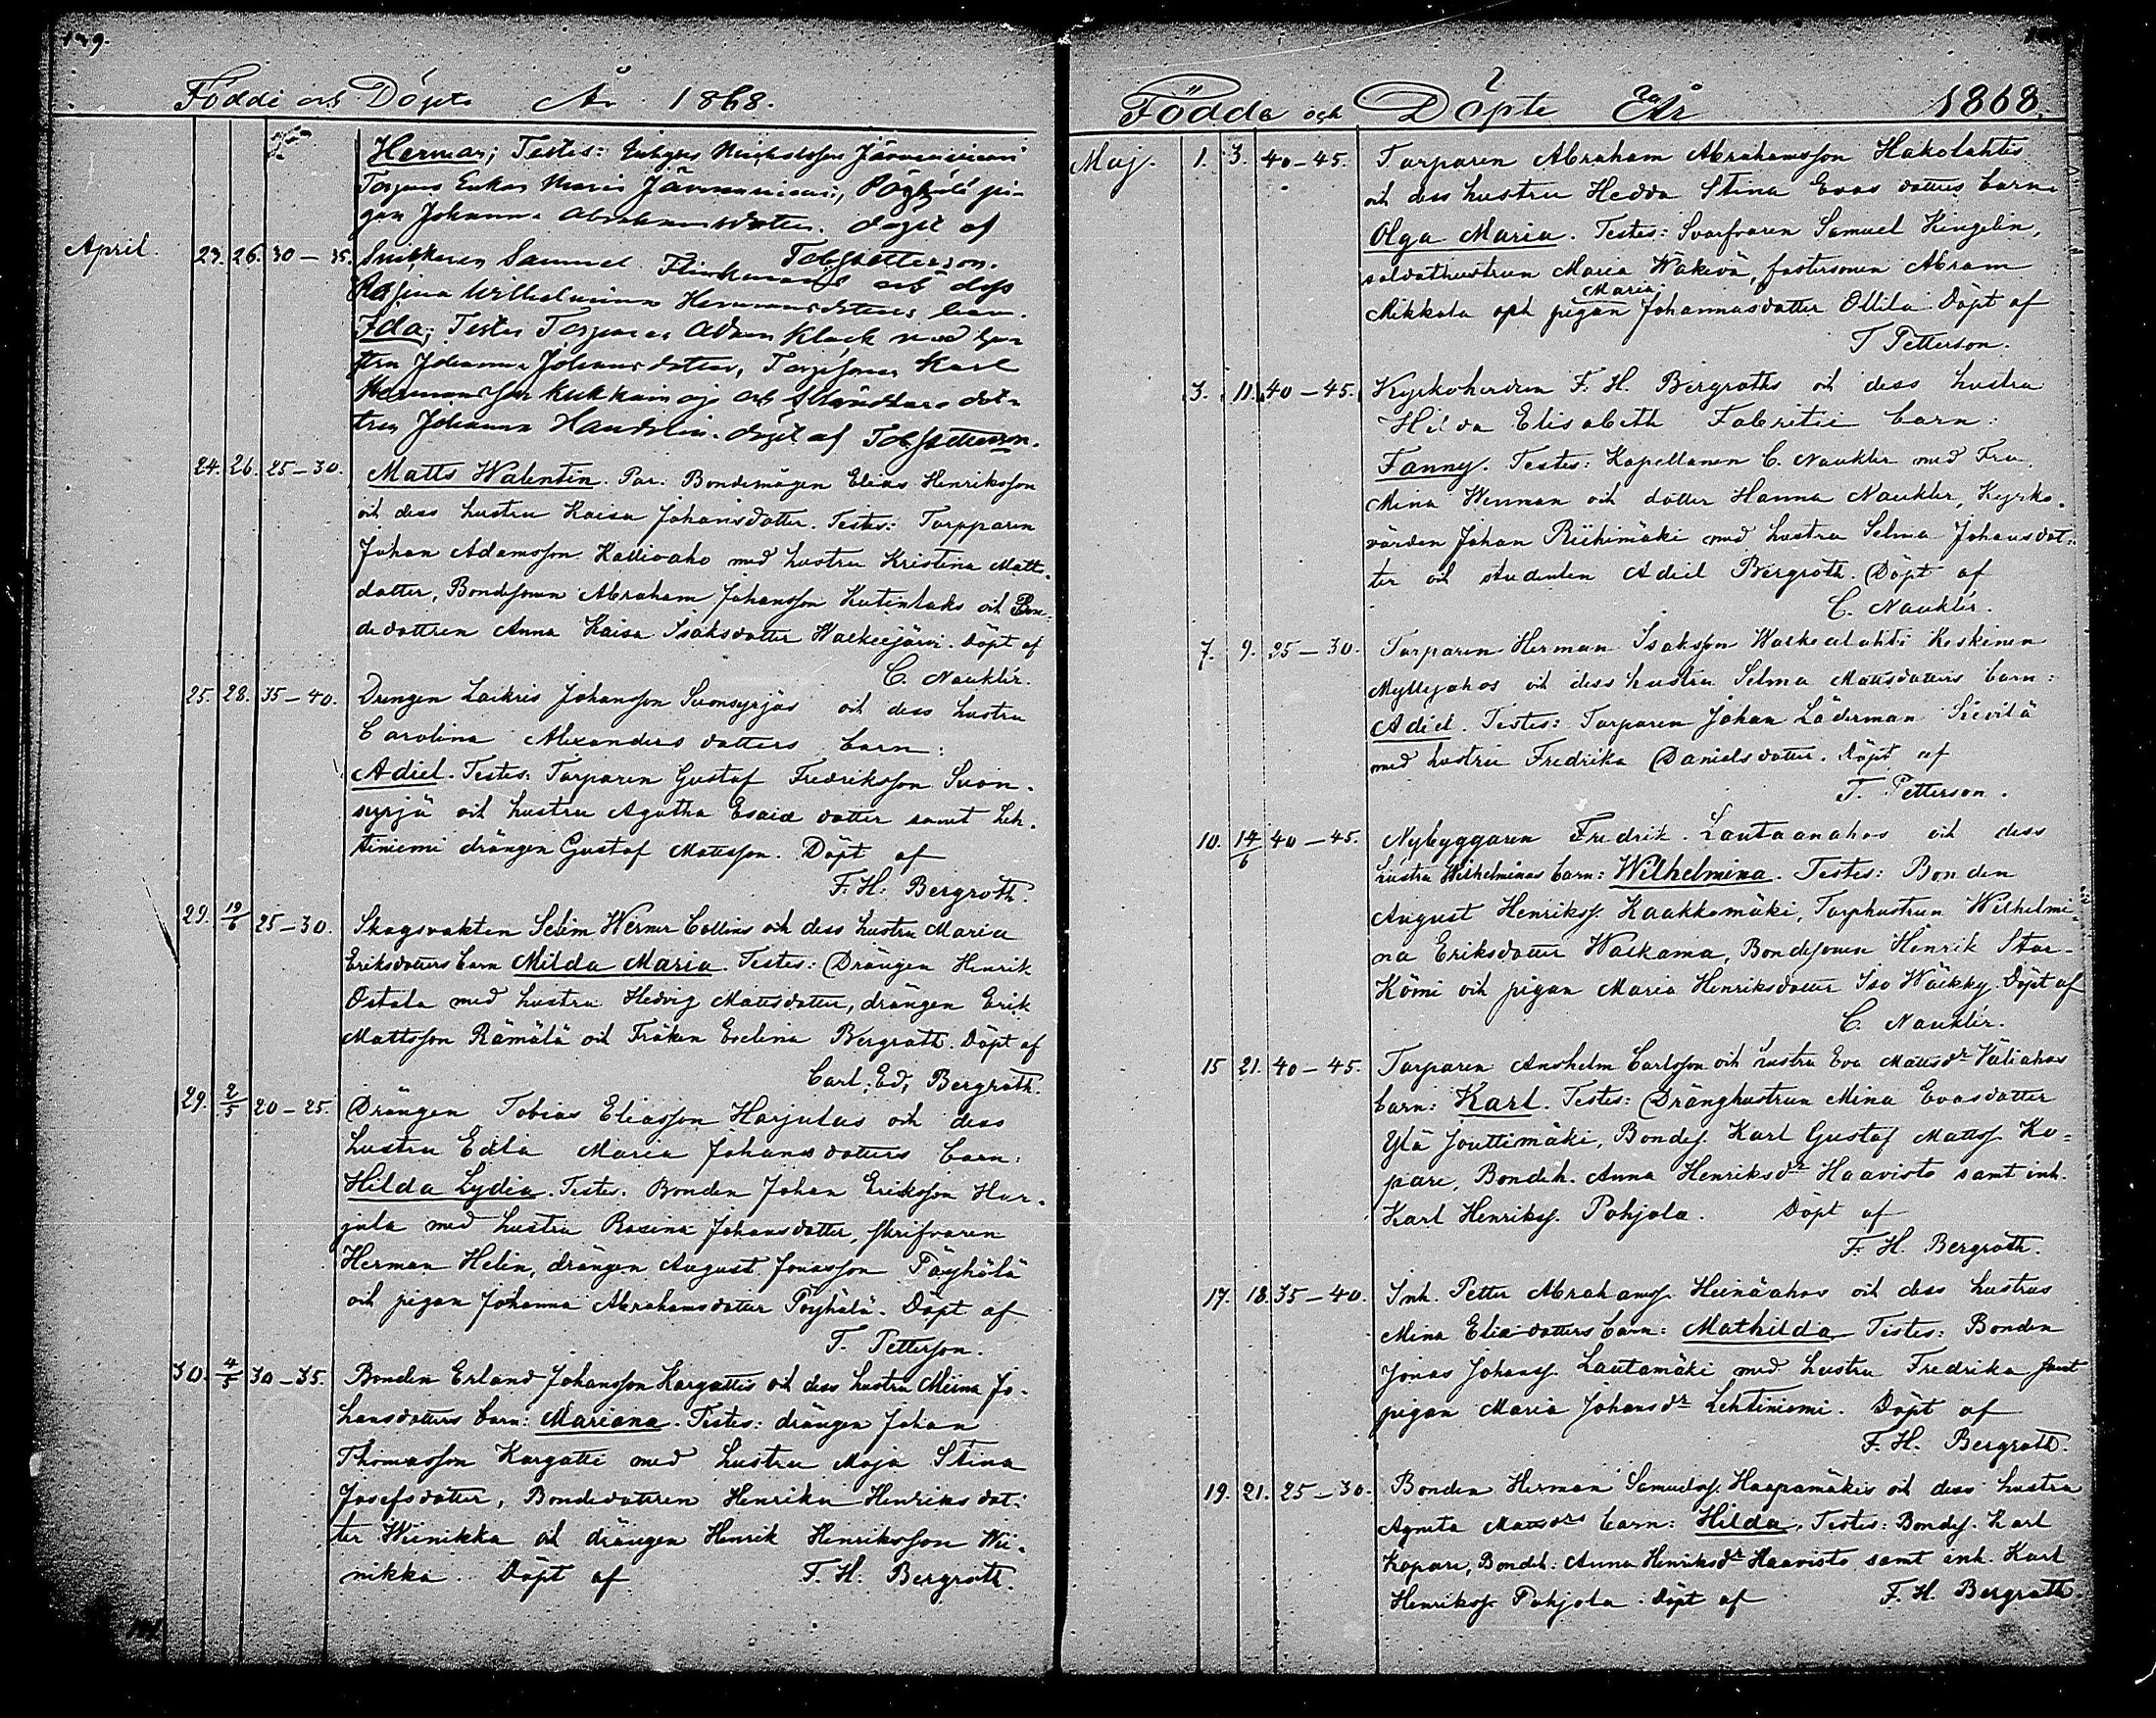 149.
Födde och Döpte År 1868.
Herman; Testes:
Torpars Enkan Maria Pöyhölä pi-
gan Johanna Abrahamsdotter. döpt af
Tob Petterson.
April. 23. 26. 30-35. Snickaren Samuel Flinkmans och dess
Regina Wilhelmina Hermansdotters barn.
Ida; Testes Torparen Adam Klack med hu-
stru Johanna Johansdotter, Torpsonen Karl
Hermansson Kukkainoja och dot-
tren Johanna Handelin. döpt af Tob Petterson.
24. 26. 25-30. Matts Walentin. Par. Bondemågen Elias Henriksson
och dess hustru Kaisa Johansdotter. Testes: Torpparen
Johan Adamsson Kallioaho med hustru Kristina Matts-
dotter, Bondesonen Abraham Johansson Kutinlaks och Bon-
dedottren Anna Kaisa Isaksdotter Waskeejärvi. Döpt af
C. Nauklér.
25. 28. 35-40. Drengen Zackris Johansson Suonsyrjäs och dess hustru
Carolina Alexanders dotters barn:
Adiel. Testes: Torparen Gustaf Fredriksson Suon-
syrjä och hustru Agatha Esaiae dotter samt Leh-
tiniemi drängen Gustaf Mattsson. Döpt af
F. H. Bergroth.
29. 19/6 25-30. Skogsvakten Selim Werner Collins och dess hustru Maria
Eriksdotters barn Milda Maria. Testes: Drängen Henrik
Ostola med hustru Hedvig Mattsdotter, drängen Erik
Mattsson Rämälä och Fröken Evelina Bergroth. Döpt af
Carl. Ed. Bergroth.
29. 2/5 20-25. Drängen Tobias Eliasson Harjulas och dess
hustru Edla Maria Johans dotters barn:
Hilda Lydia. Testes. Bonden Johan Eriksson Har-
jula med hustru Rosina Johansdotter, skrifvaren
Herman Helin, drängen August Jonasson Pöyhölä
och pigan Johanna Abrahamsdotter Pöyhölä. Döpt af
T. Petterson.
30. 4/5 30-35. Bonden Erland Johansson Kargattis och dess hustru Miina Jo-
hansdotters barn: Mariana. Testes: drängen Johan
Thomasson Kargatti med hustru Maja Stina
Josefsdotter, Bondedottren Henrika Henriksdot-
ter Wiinikka och drängen Henrik Henriksson Wii-
nikka. Döpt af F. H. Bergroth.
Födda och Döpte År 1868.
Maj. 1. 3. 40-45. Torparen Abraham Abrahamsson Hakolahtis
och dess hustru Hedda Stina Evas dotters barn.
Olga Maria. Testes: Svarfvaren Samuel Kingelin,
soldathustrun Maria Wäkevä, fostersonen Abram
Mikkola och pigan Maria Johannasdotter Ollila. Döpt af
T Petterson.
3. 11. 40-45. Kyrkoherden F. H. Bergroths och dess hustru
Hilda Elisabeth Fabritii barn:
Fanny. Testes: Kapellanen C. Nauklér med Fru
Mina Wenman och dotter Hanna Nauklér, Kyrko-
värden Johan Riihimäki med hustru Selma Johansdot-
ter och studenten Adiel Bergroth. Döpt af
C. Nauklér.
7. 9. 25-30. Torparen Herman Isaksson Waskealahti Keskinen
Myllyahos och dess hustru Selma Mattsdotters barn:
Adiel. Testes: Torparen Johan Läderman Sievilä
med hustru Fredrika Danielsdotter. Döpt af
T. Petterson.
10. 14/6 40-45. Nybyggaren Fredrik Lautaanahos och dess
hustru Wilhelminas barn: Wilhelmina. Testes: Bonden
August Henrikss. Kaakkomäki, Torphustrun Wilhelmi-
na Eriksdotter Waskama, Bondesonen Henrik Stor-
Kömi och pigan Maria Henriksdotter Iso Wäkky. Döpt af
C. Nauklér.
15 21. 40-45. Torparen Anshelm Carlsson och hustru Eva Mattsdr Väliahos
barn: Karl. Testes: Dränghustrun Mina Evasdotter
Ylä Jouttimäki, Bondes. Karl Gustaf Mattss. Ko-
pare, Bondeh. Anna Henriksdr Haavisto samt inh.
Karl Henrikss. Pohjola. Döpt af
F. H. Bergroth.
17. 18. 35-40. Inh. Petter Abrahamss. Heinäahos och dess hustrus
Mina Eliædotters barn: Mathilda. Testes: Bonden
Jonas Johanss. Lautamäki med hustru Fredrika samt
pigan Maria Johansdr Lehtiniemi. Döpt af
F. H. Bergroth.
19. 21. 25-30. Bonden Herman Samuelss. Haapamäkis och dess hustru
Agneta Mattsdrs barn: Hilda. Testes: Bondes. Karl
Kopare, Bondeh. Anna Henriksdr Haavisto samt inh. Karl
Henrikss. Pohjola. Döpt af F. H. Bergroth.